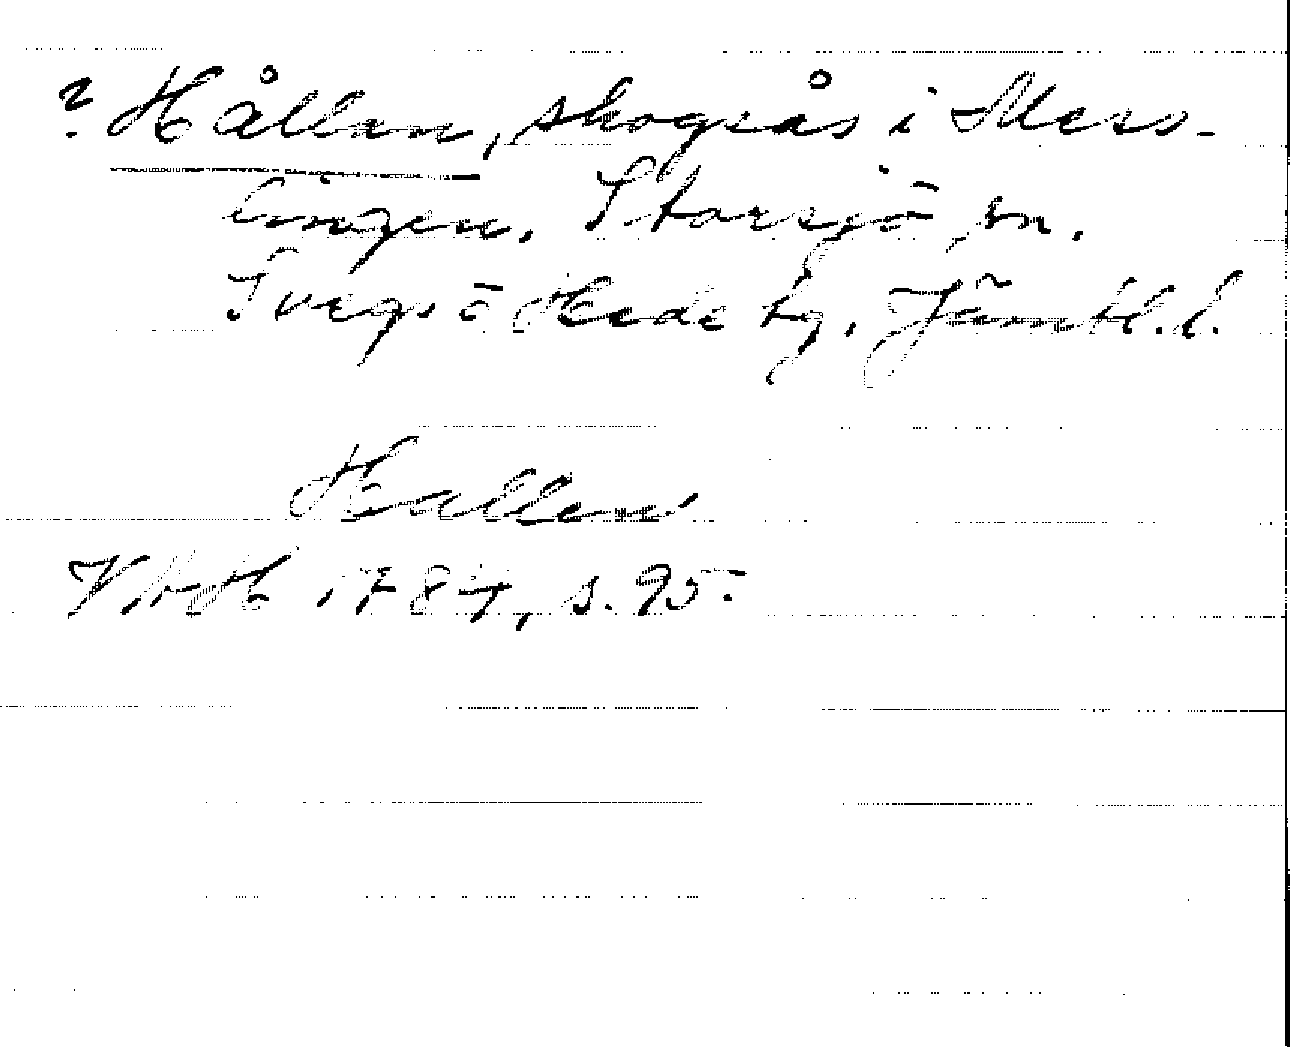 ? Hållan, skogsås i Mers-
lingen. Storsjö sn.
Svegs ö Hede tg. Jämtl. l.
Hallen
VHAH 1784, s. 95.